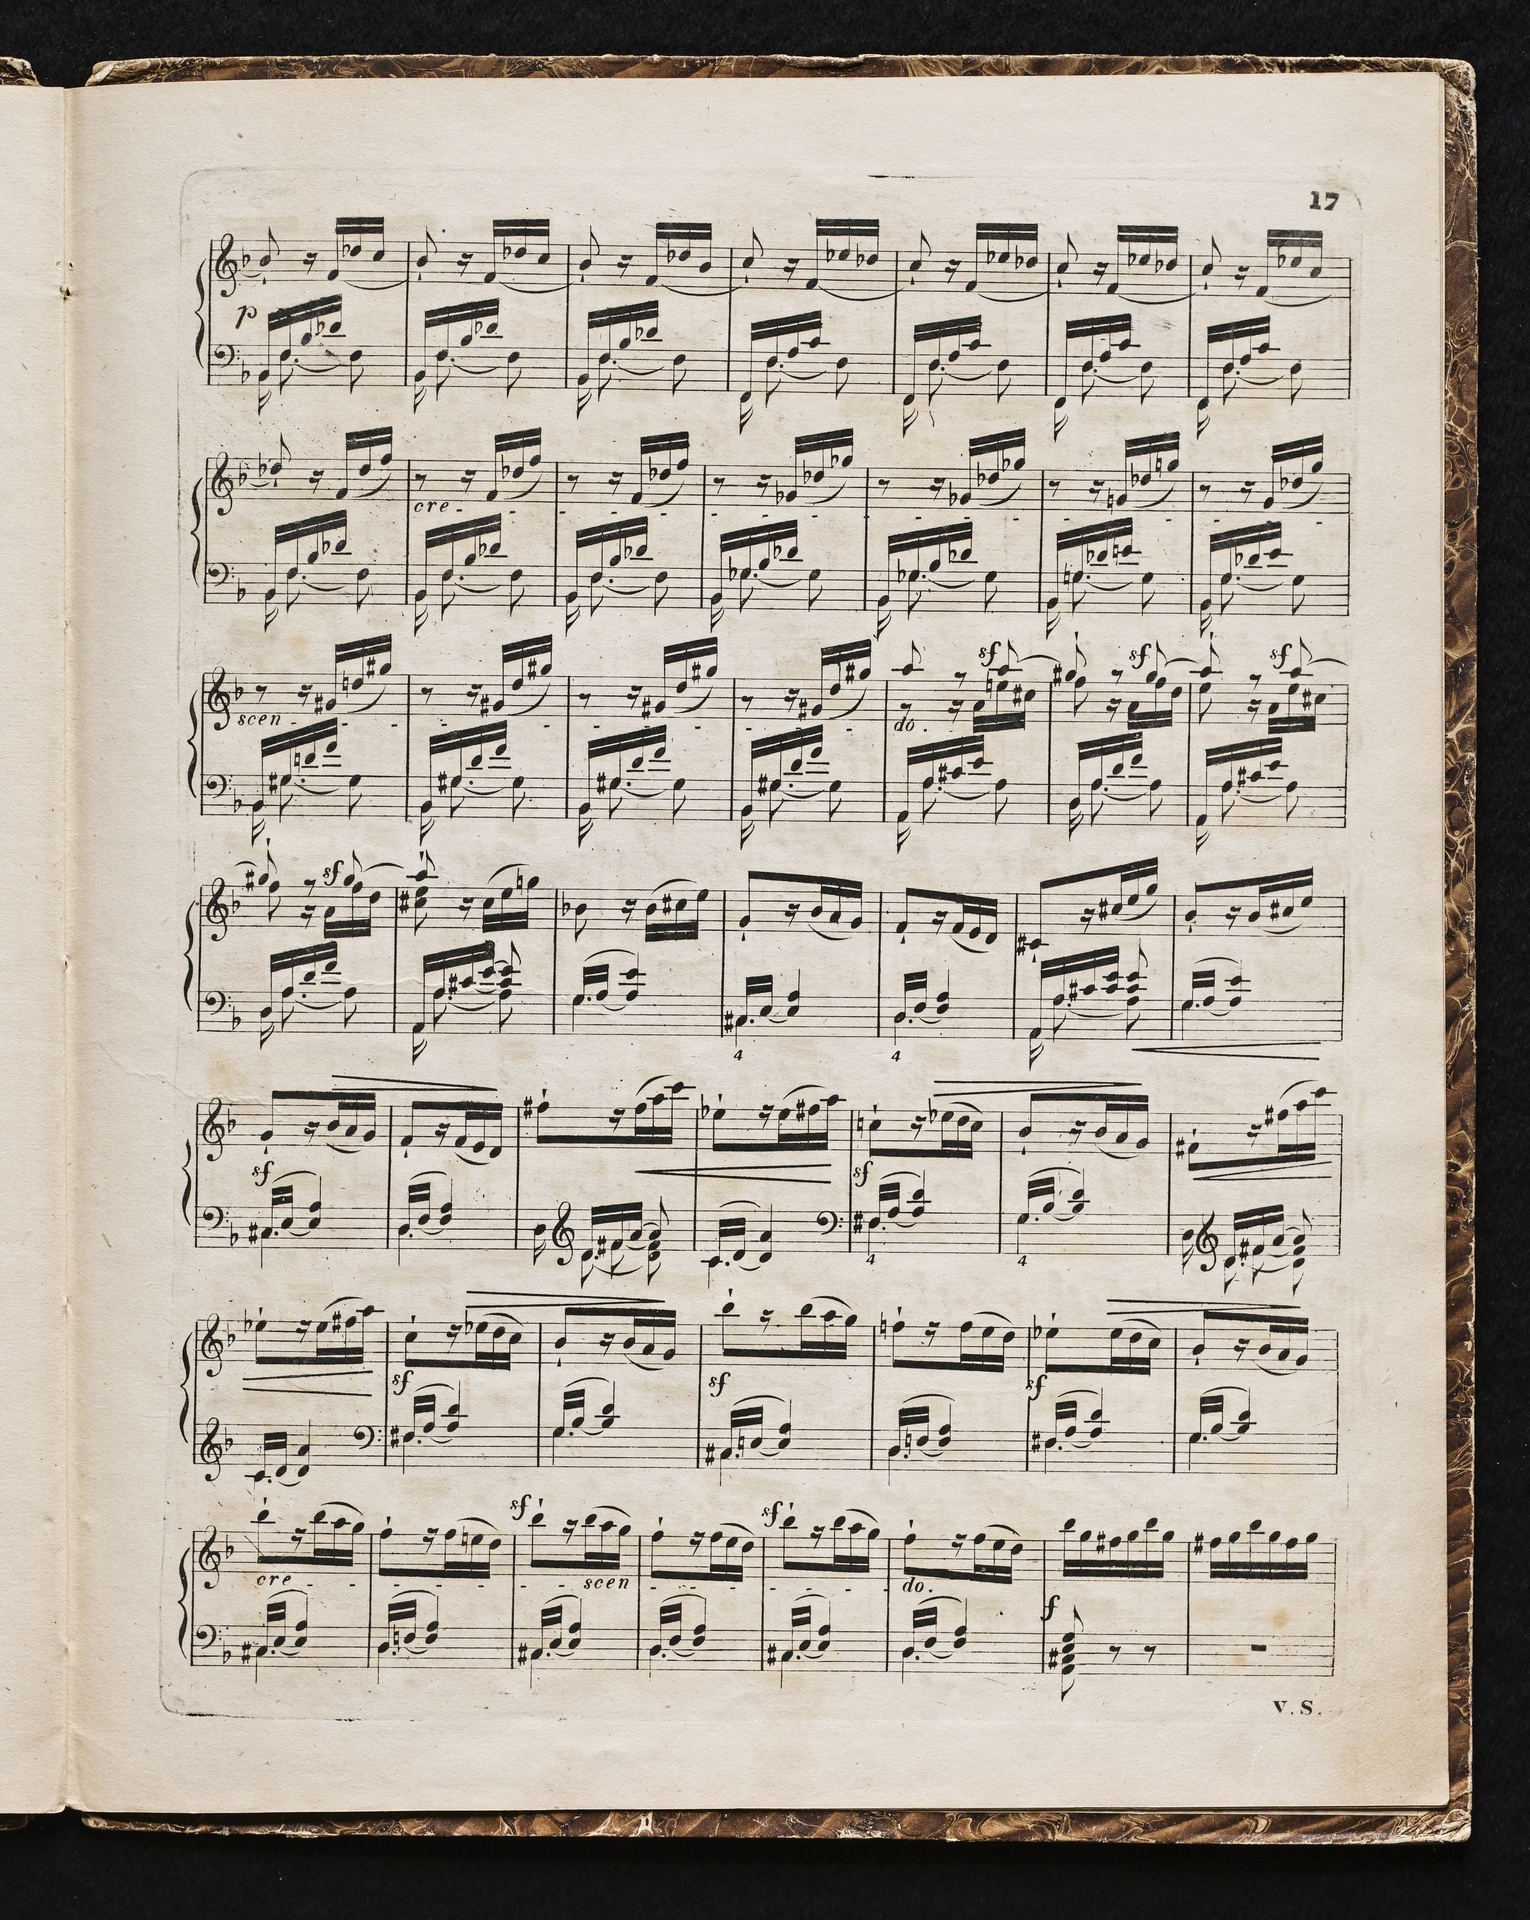 17
p
cre - - - - - - - -
scen - - - - - - - -
sf sf sf
do.
sf
4 4
sf sf
4 4
sf sf sf
sf sf
cre - - - - - - - - scen - - - - - - - - do.
f
V. S.